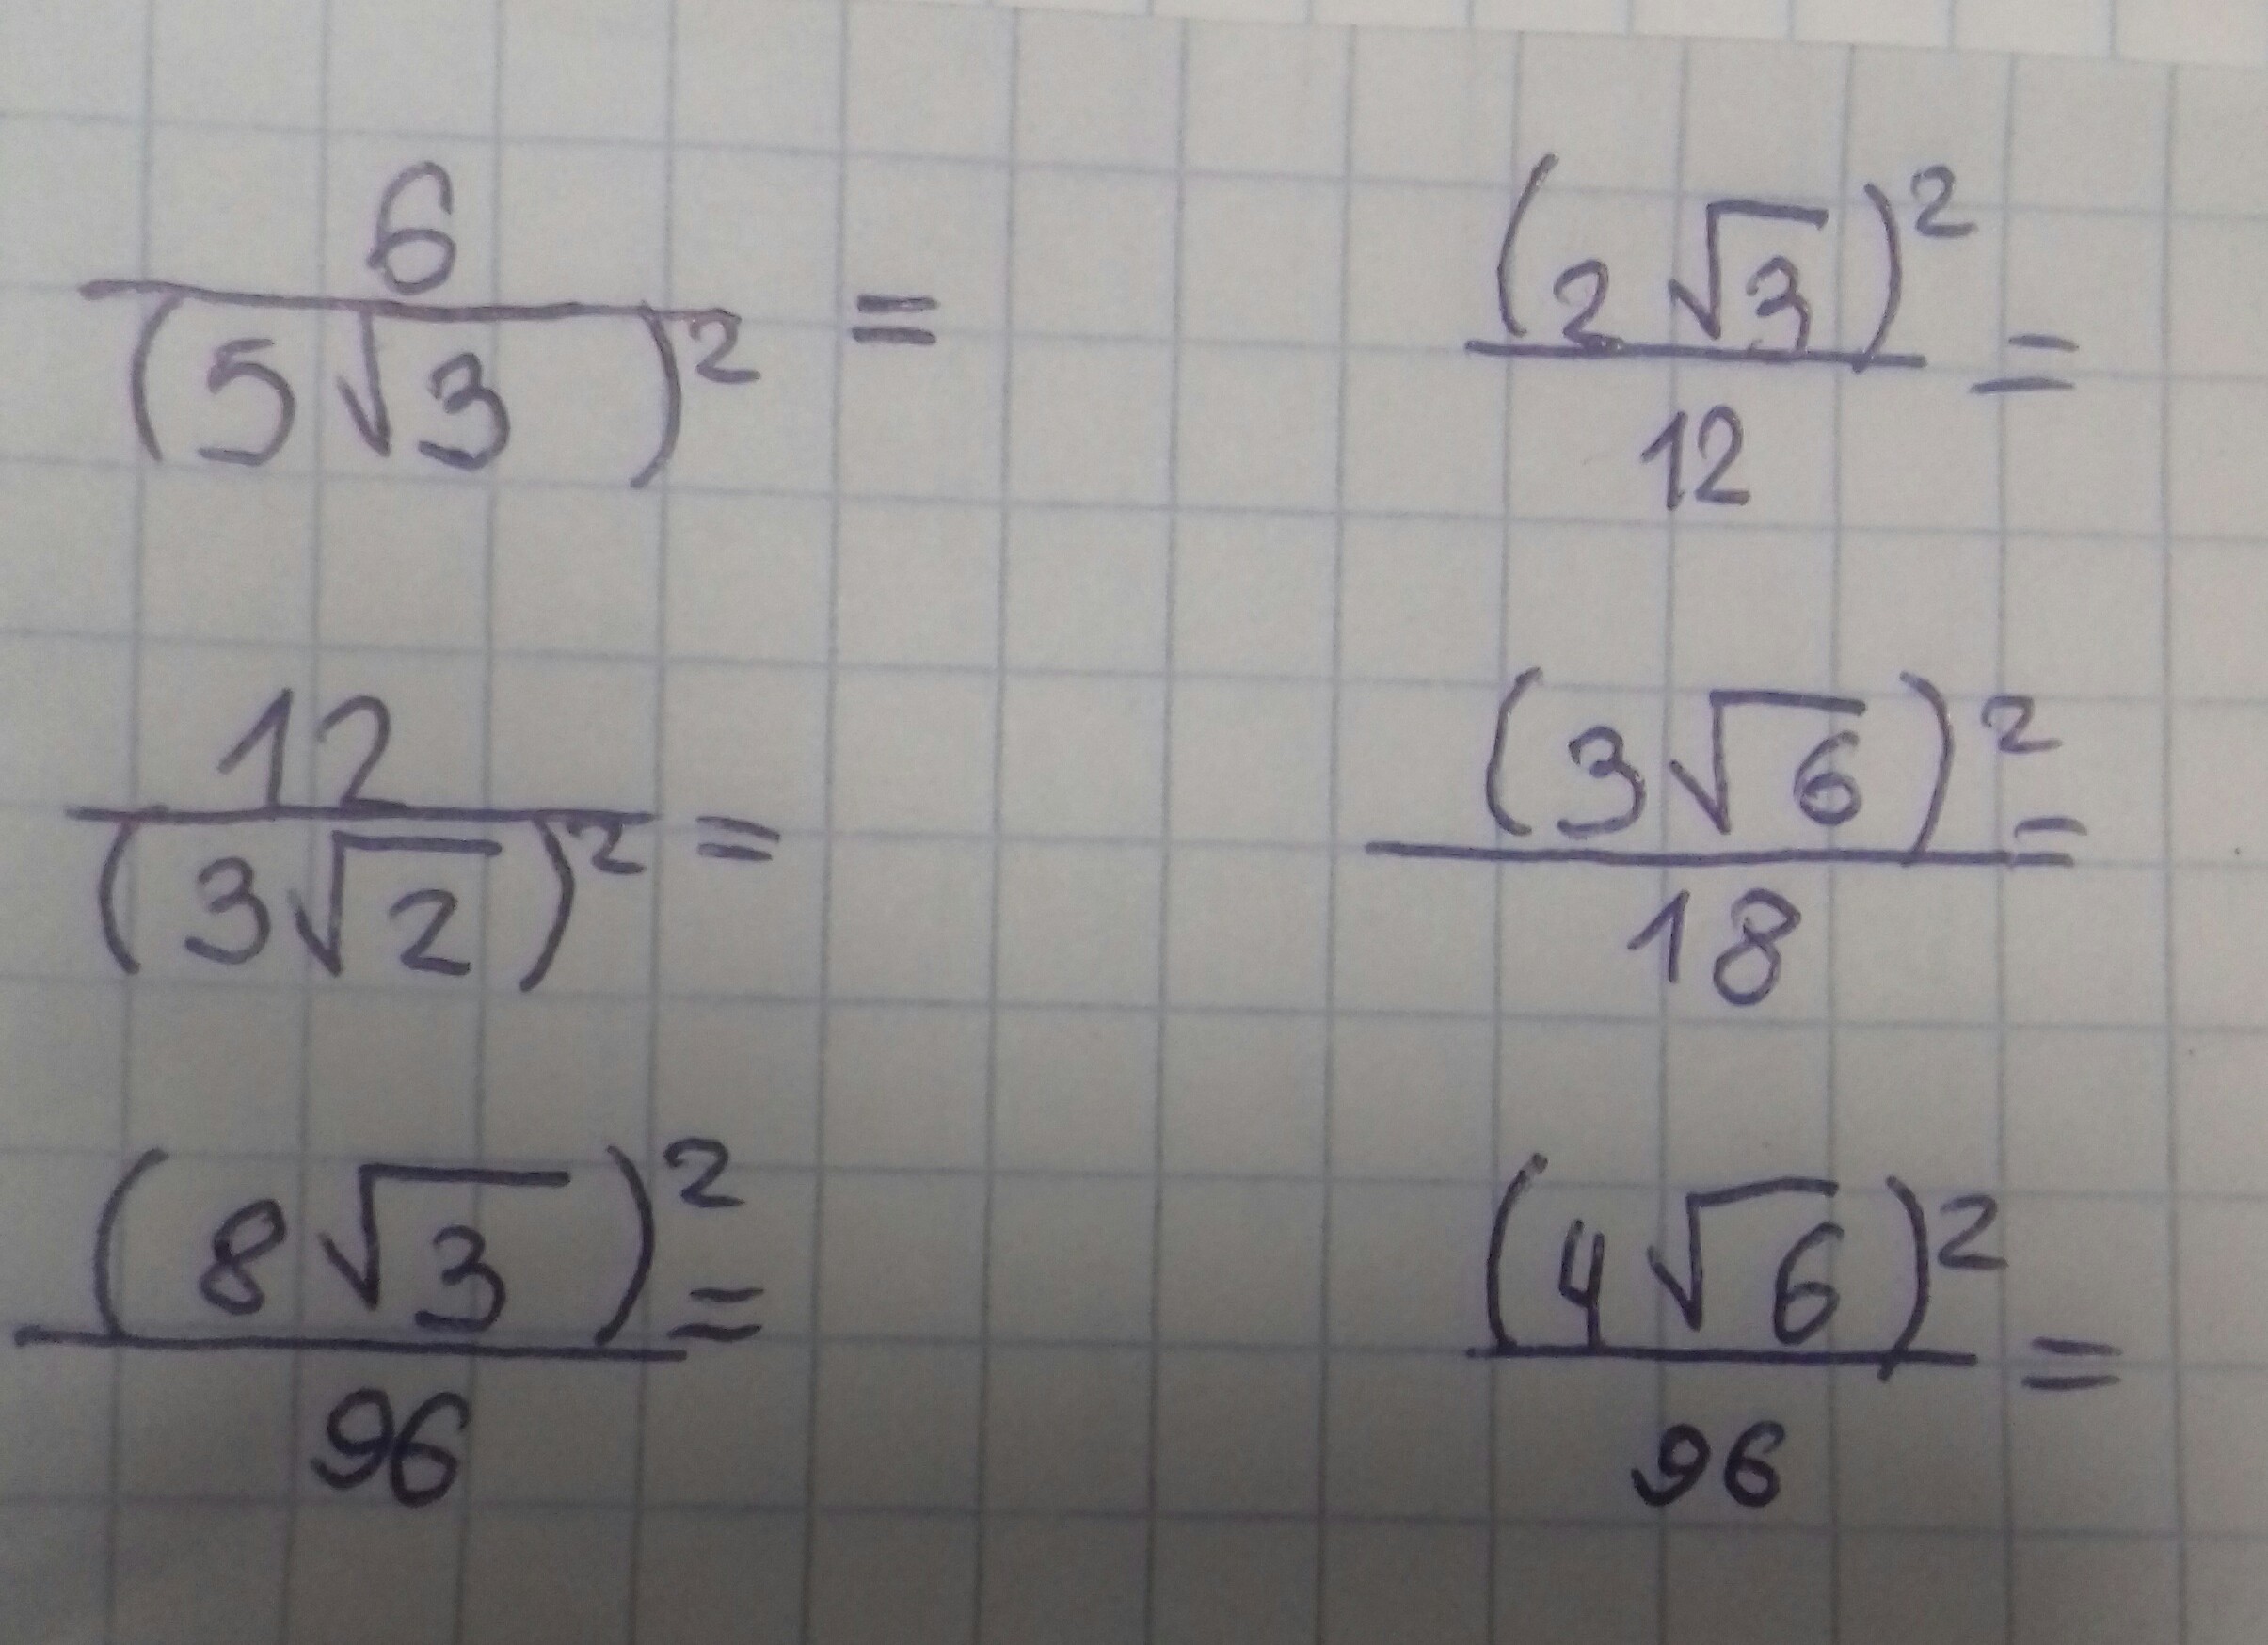 6/(5√3)² = (2√3)²/12 =
12/(3√2)² = (3√6)²/18 =
(8√3)²/96 = (4√6)²/96 =